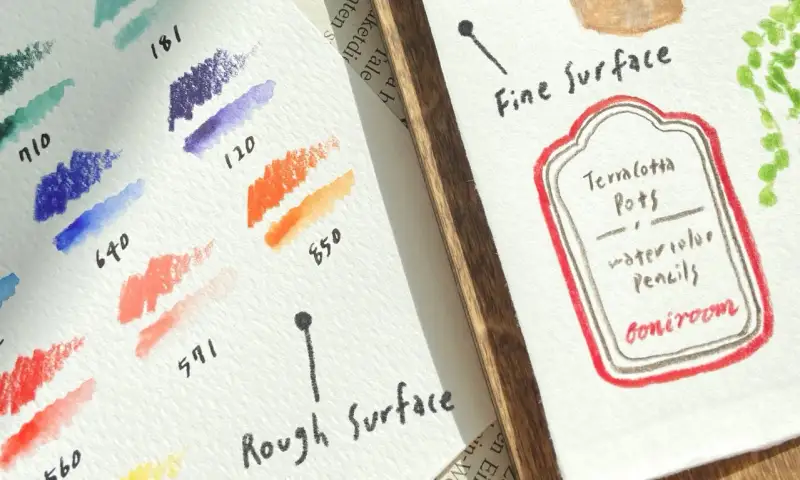 181
710
120
640
850
571
560
Rough Surface
Fine Surface
Terracotta
Pots
watercolor
Pencils
boniroom
Tale